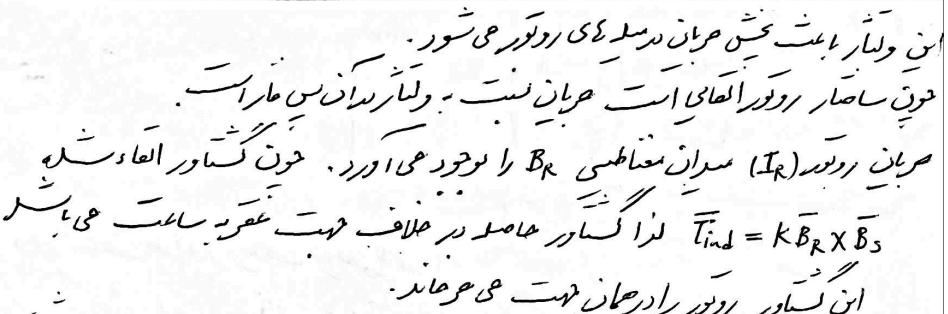 این ولتاژ باعث پخش جریان در میله های روتور می شود.
چون ساختار روتور القائی است جریان نسبت به ولتاژ در آن پس فاز است.
جریان روتور (I_R) میدان مغناطیسی B_R را بوجود می آورد. چون گشتاور القاء شده
τ̄_ind = K B̄_R × B̄_S لذا گشتاور حاصله در خلاف جهت عقربه ساعت می باشد
این گشتاور روتور را در همان جهت می چرخاند.